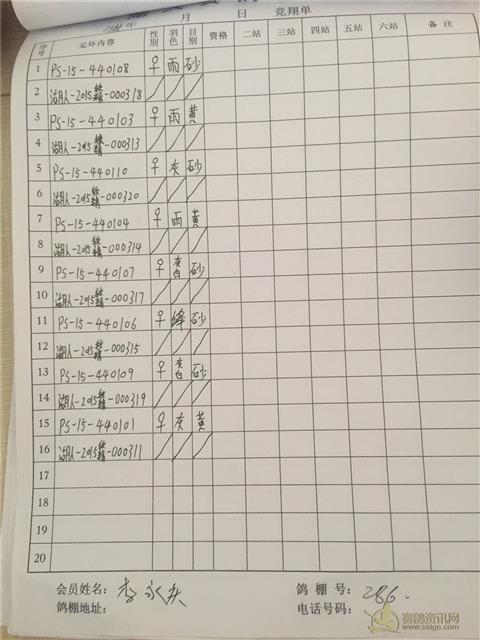 年 月 日 竞翔单
序号 足环内容 性别 羽色 目别 资格 二站 三站 四站 五站 六站 备注
1 PS-15-440108 ♀ 雨 砂
2 湖人-2015 -000318 / / /
3 PS-15-440103 ♀ 雨 黄
4 湖人-2015 -000313 / / /
5 PS-15-440110 ♀ 灰 砂
6 湖人-2015 -000320 / / /
7 PS-15-440104 ♀ 雨 黄
8 湖人-2015 -000314 / / /
9 PS-15-440107 ♀ 灰白 砂
10 湖人-2015 -000317 / / /
11 PS-15-440106 ♀ 绛 砂
12 湖人-2015 -000315 / / /
13 PS-15-440109 ♀ 灰白 砂
14 湖人-2015 -000319 / / /
15 PS-15-440101 ♀ 灰 黄
16 湖人-2015 -000311 / / /
17
18
19
20
会员姓名: 李永 鸽棚号: 286
鸽棚地址: 电话号码:
赛鸽资讯网
www.saige.com